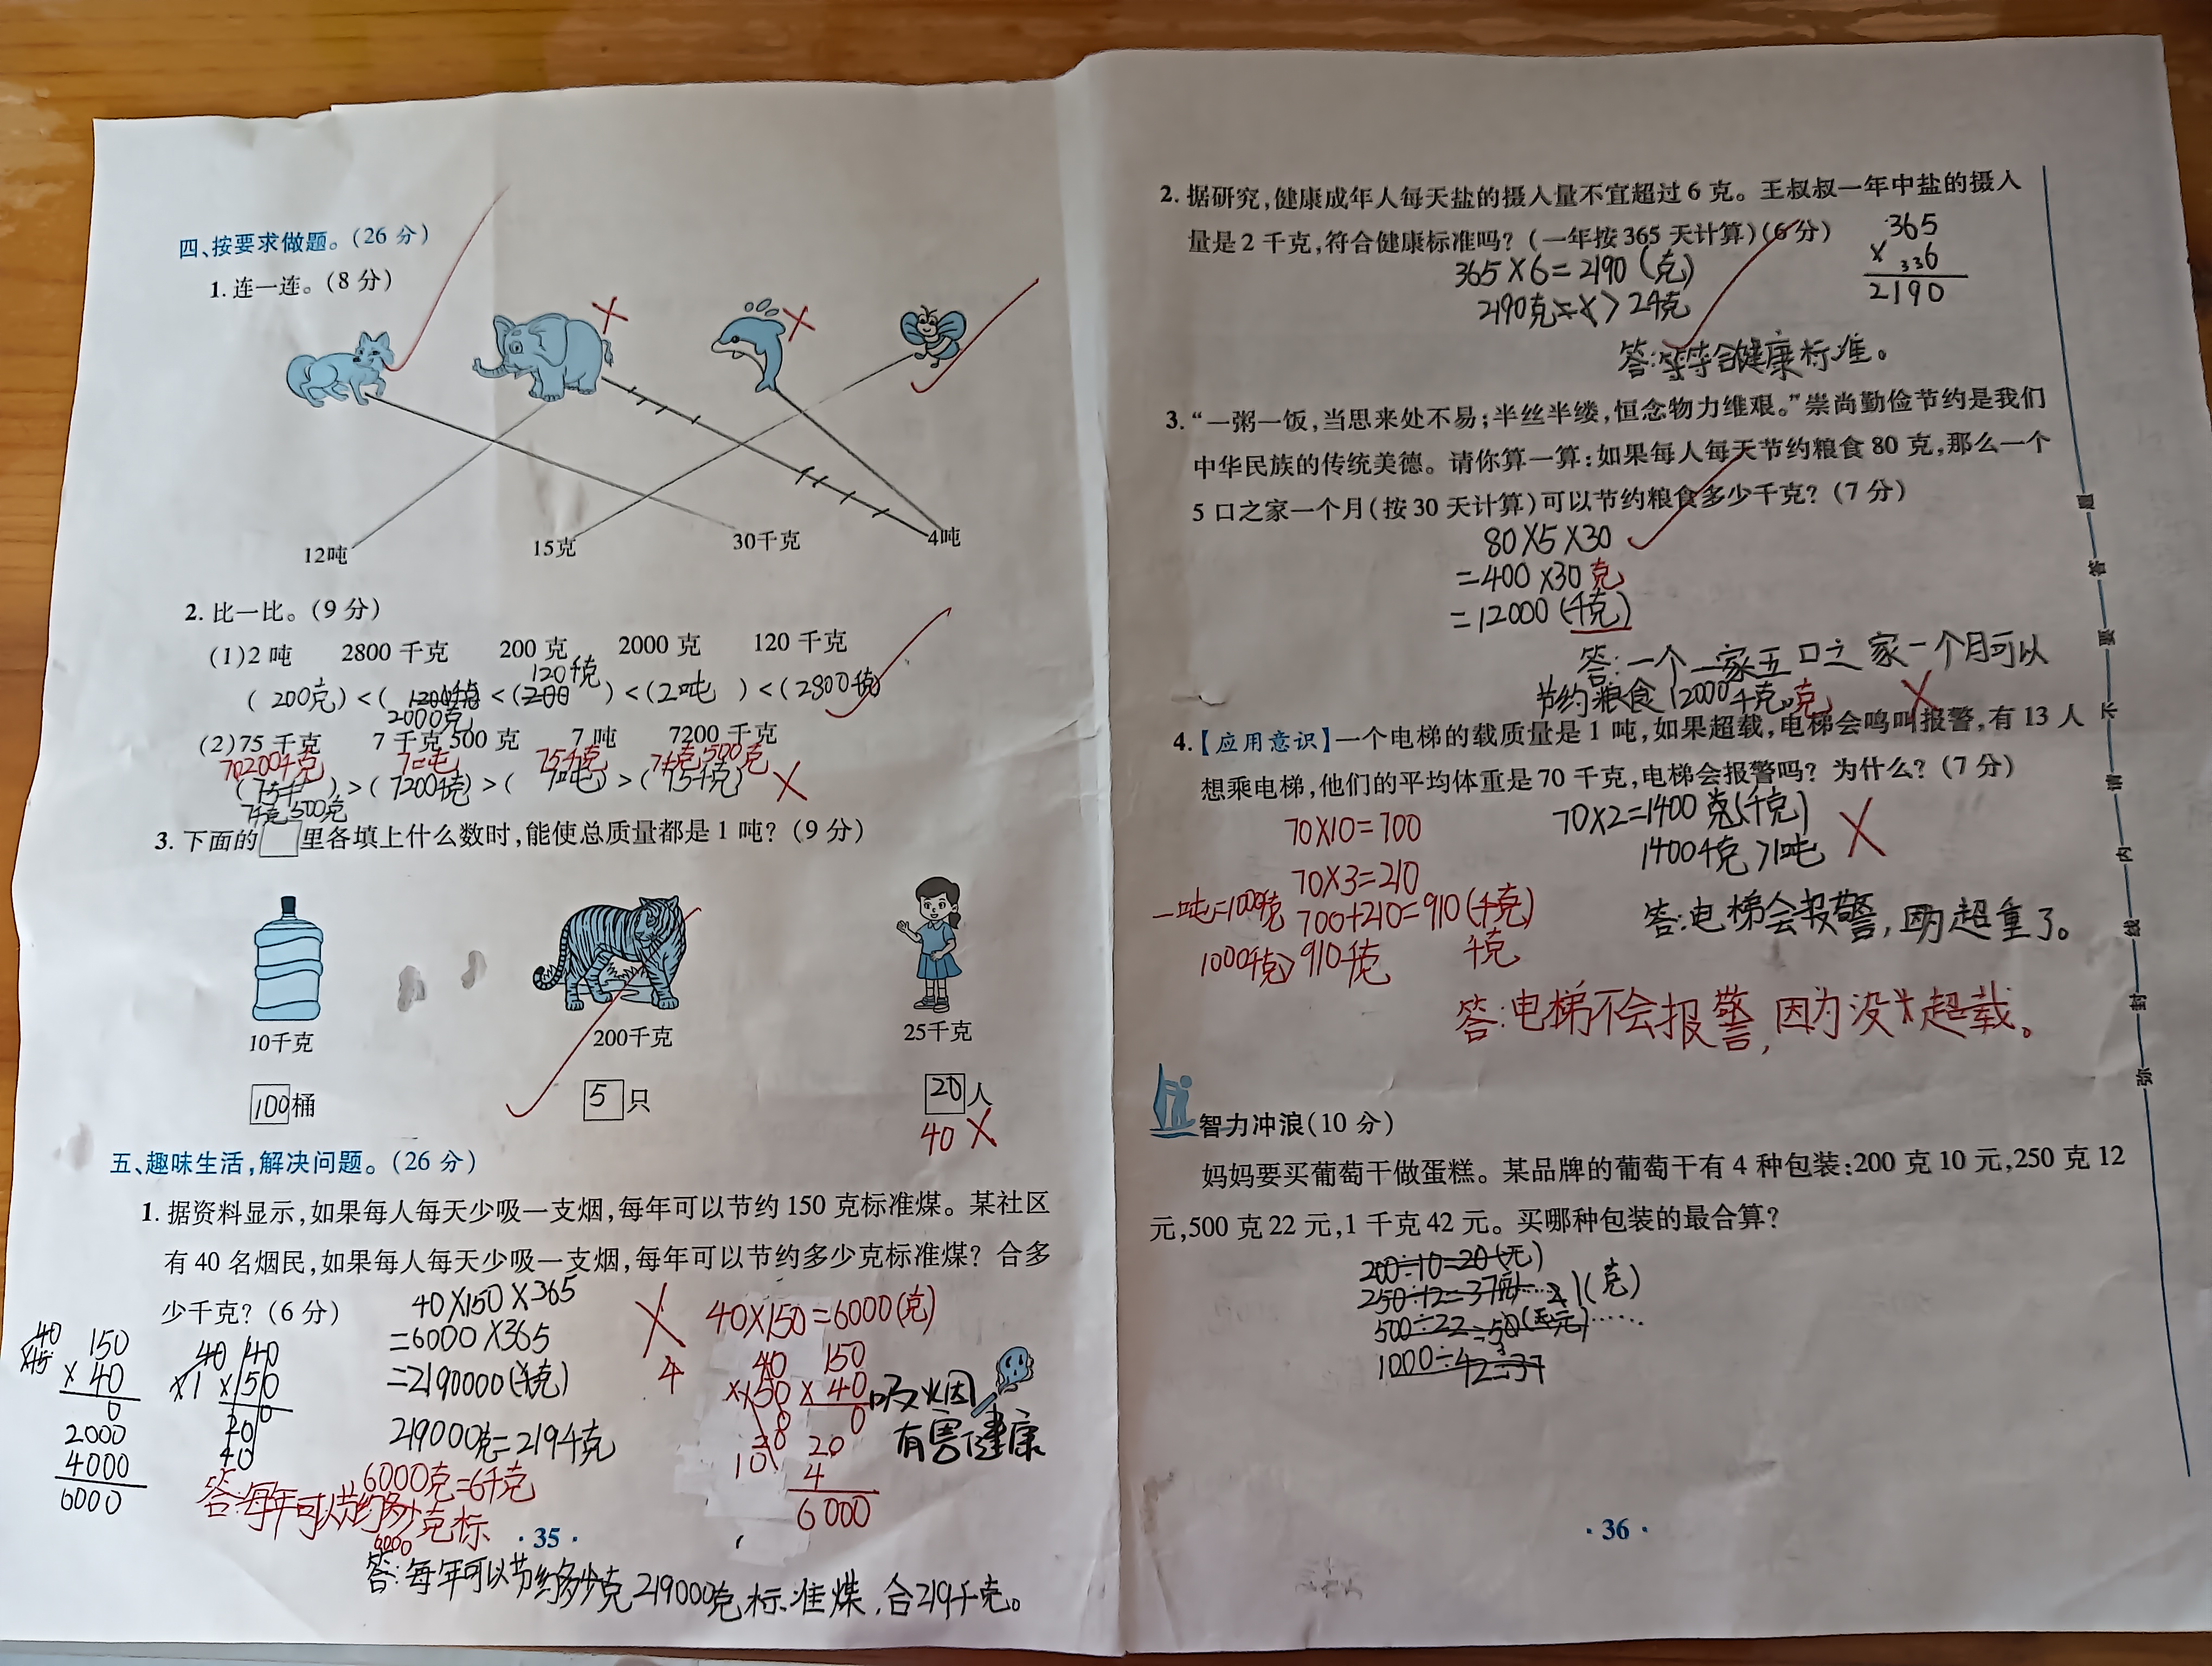 四、按要求做题。(26 分)
1. 连一连。(8 分)
12吨 15克 30千克 4吨
2. 比一比。(9 分)
(1)2 吨 2800 千克 200 克 2000 克 120 千克
120千克
(200克)<( <( )<(2吨 )<(2800千克)
2000克
(2)75 千克 7 千克 500 克 7 吨 7200 千克
7吨 75千克 7千克500克
( )>(7200千克)>( 7吨)>(75千克)
7千克500克
3. 下面的 里各填上什么数时,能使总质量都是 1 吨?(9 分)
10千克 200千克 25千克
100桶 5只 20人
40
五、趣味生活,解决问题。(26 分)
1. 据资料显示,如果每人每天少吸一支烟,每年可以节约 150 克标准煤。某社区
有 40 名烟民,如果每人每天少吸一支烟,每年可以节约多少克标准煤? 合多
少千克?(6 分)
40×150×365
=6000×365
=2190000(千克)
219000克=219千克
6000克=6千克
答:每年可以节约多少克标
6000
150
× 40
0
2000
4000
6000
40
×150
20
40
4
40×150=6000(克)
150
× 40
0
20
4
6000
吸烟
有害健康
·35·
答:每年可以节约多少克219000克标准煤,合219千克。
2. 据研究,健康成年人每天盐的摄入量不宜超过 6 克。王叔叔一年中盐的摄入
量是 2 千克,符合健康标准吗?(一年按 365 天计算)(6 分)
365×6=2190(克)
2190克 >2千克
365
× 336
2190
答: 符合健康标准。
3. “一粥一饭,当思来处不易;半丝半缕,恒念物力维艰。”崇尚勤俭节约是我们
中华民族的传统美德。请你算一算:如果每人每天节约粮食 80 克,那么一个
5 口之家一个月(按 30 天计算)可以节约粮食多少千克?(7 分)
80×5×30
=400×30 克
=12000(千克)
答:一个 家五口之家一个月可以
节约粮食12000千克。克
4.【应用意识】一个电梯的载质量是 1 吨,如果超载,电梯会鸣叫报警,有 13 人
想乘电梯,他们的平均体重是 70 千克,电梯会报警吗? 为什么?(7 分)
70×2=1400 (千克)
1400千克>1吨
答:电梯会报警,因为超重了。
70×10=700
70×3=210
一吨=1000千克 700+210=910(千克)
1000千克>910千克 千克
答:电梯不会报警,因为没 超载。
智力冲浪(10 分)
妈妈要买葡萄干做蛋糕。某品牌的葡萄干有 4 种包装:200 克 10 元,250 克 12
元,500 克 22 元,1 千克 42 元。买哪种包装的最合算?
200÷10=20(元)
250÷12= 1(克)
500÷22=50
1000÷42=37
·36·
弥 封 线 内 请 不 要 答 题